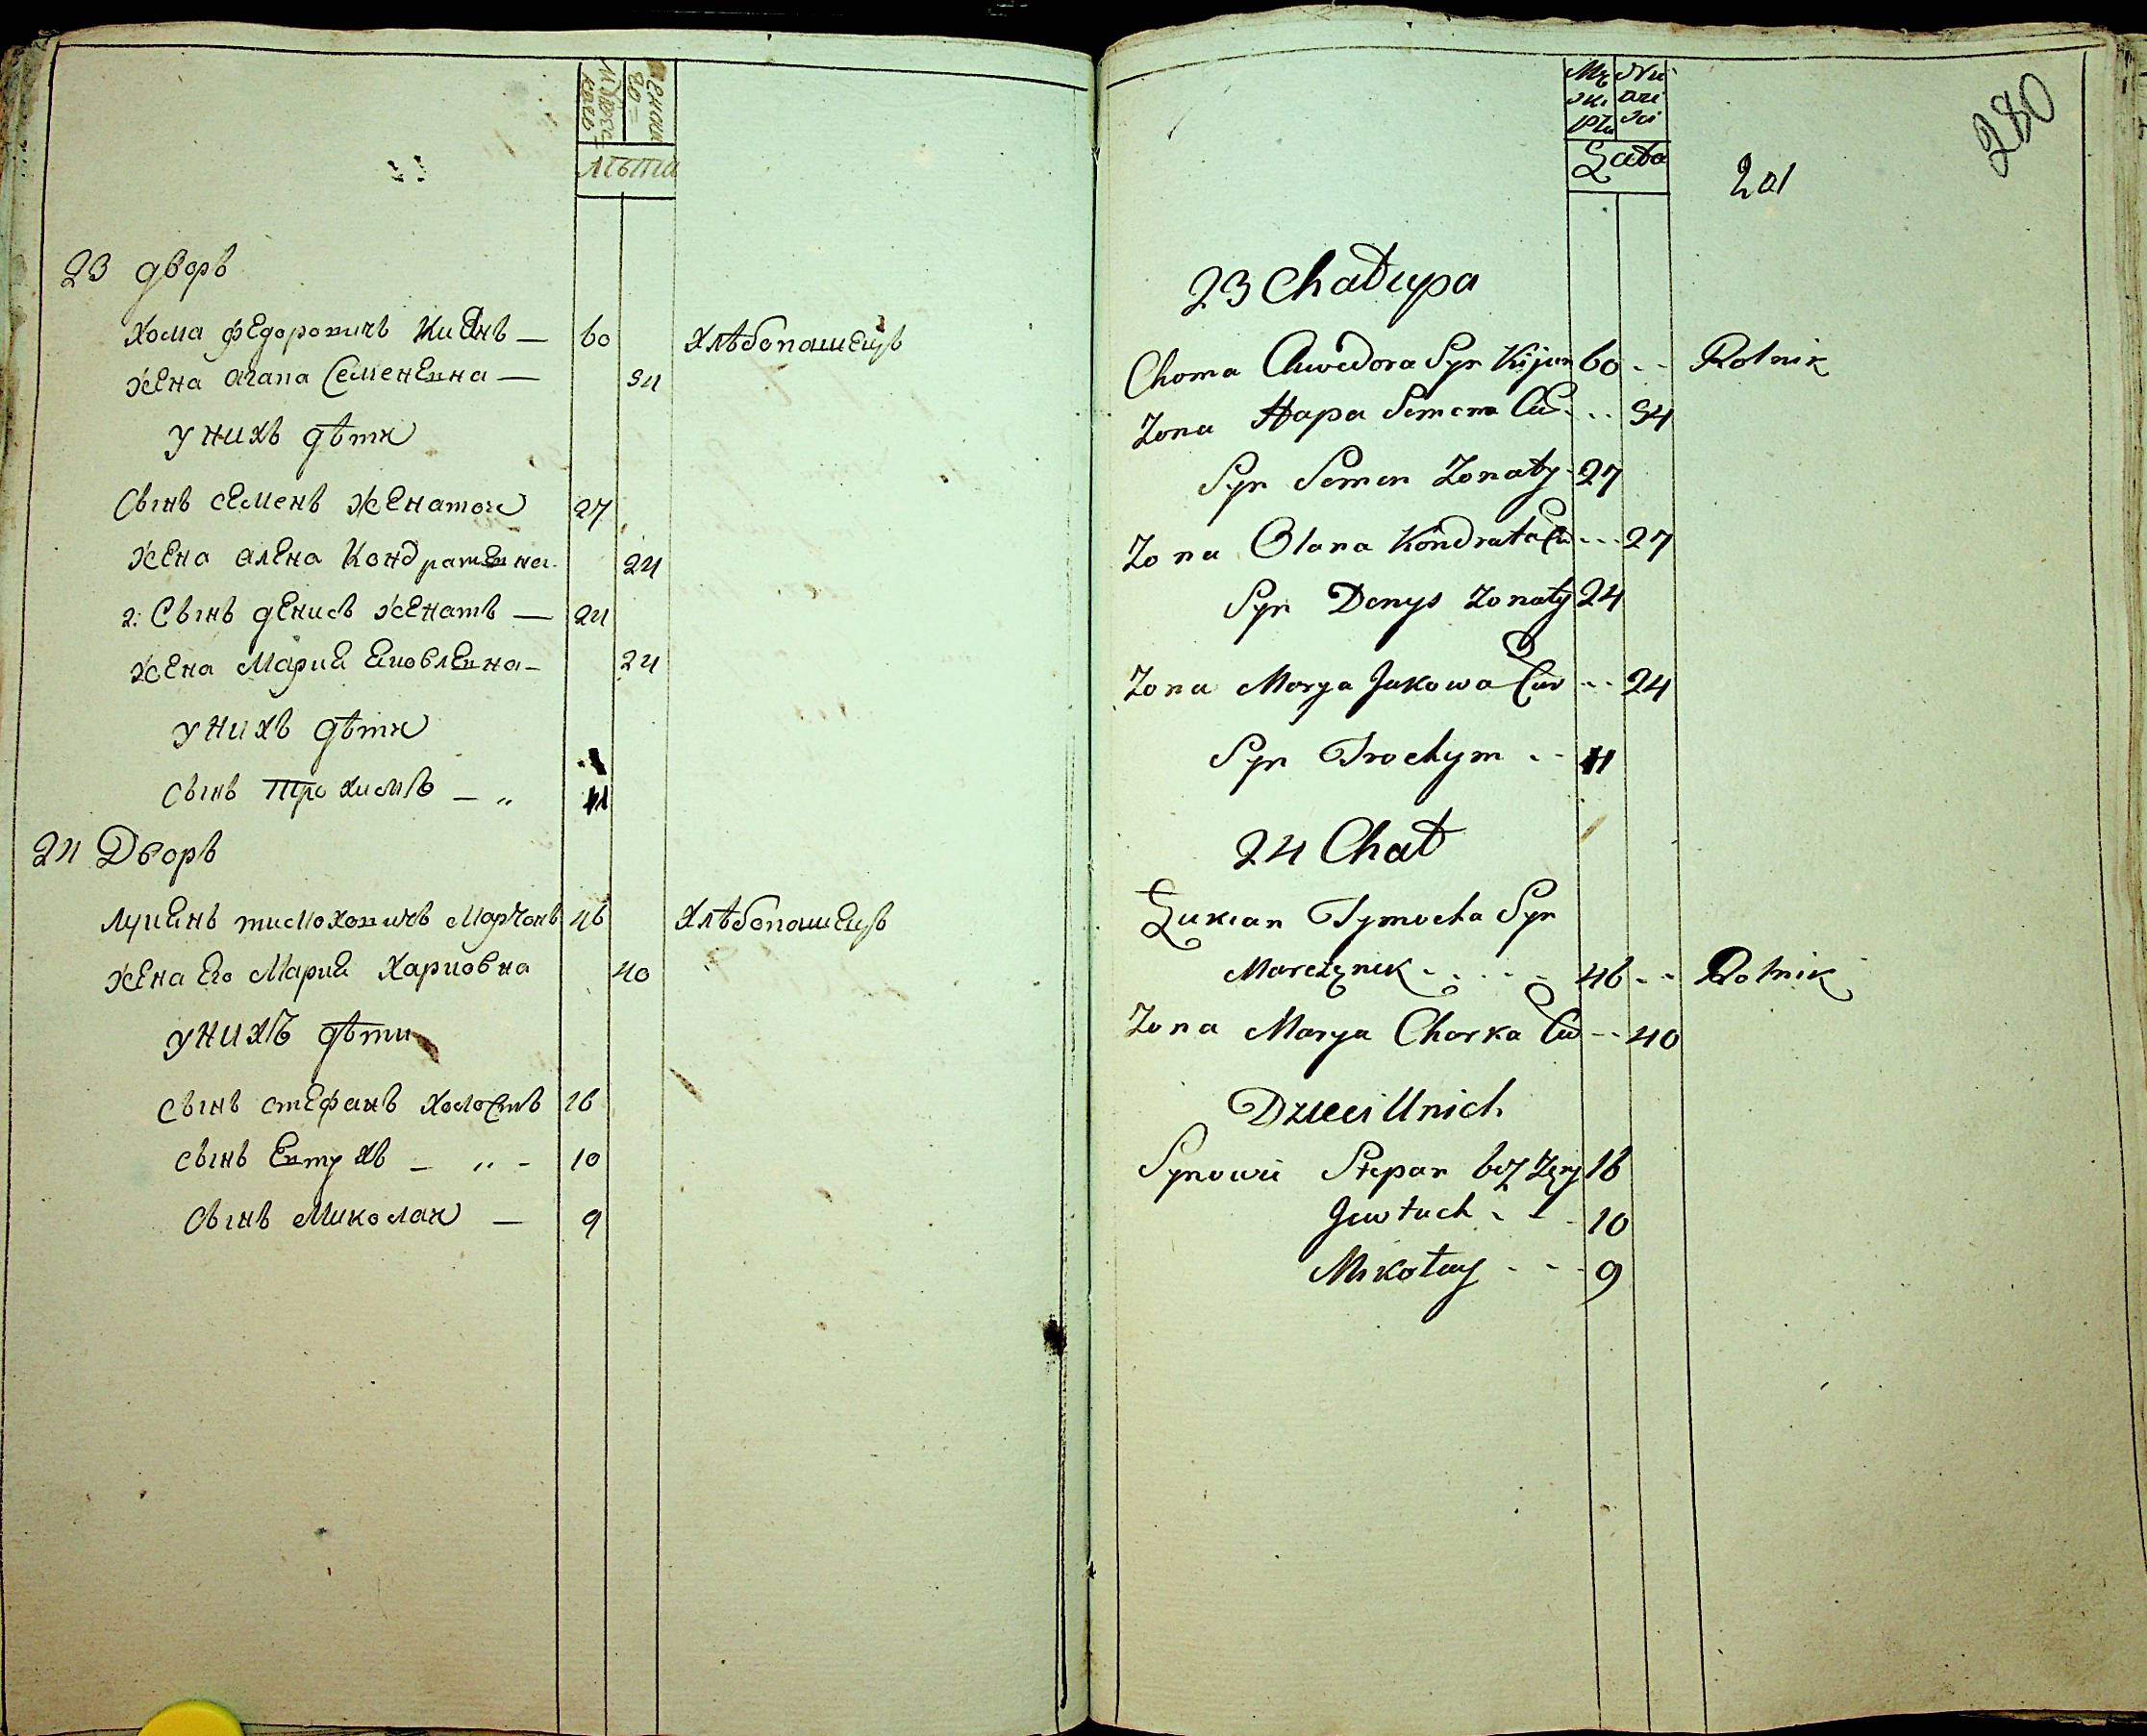 Мужес=
каго
женска
го=
лѣта
23 дворъ
Хома Федоровичъ Киянъ — 60 Хлѣбопашецъ
жена Агапа Семеневна — 54
у нихъ дѣти
Сынъ Семенъ женатой 27
жена Алена Кондратевна 24
2: Сынъ Денисъ женатъ — 24
жена Мария Яковлевна — 24
у нихъ дѣти
сынъ Трохимъ — „ 11
24 Дворъ
Лукянъ Тимохович Марчонъ 46 Хлѣбопашецъ
жена Его Мария Харковна 40
у нихъ дѣти
сынъ Стефанъ холостъ 16
сынъ Евтухъ — „ - 10
Сынъ Миколай — 9
280
201
Lata
23 Chałupa
Choma Chwedora Syn Kijan 60 -- Rolnik
Żona Hapa Semena Cur -- 54
Syn Semen Żonaty - 27
Żona Olana Kondrata Cu --- 27
Syn Denys żonaty 24
Żona Marya Jakowa Cur -- 24
Syn Trochym -- 11
24 Chał
Łukian Tymocha Syn
Marczenk - - - - - 46 -- Rolnik
Żona Marya Charka Cur -- 40
Dzieci U nich
Synowie Stepan bez żeny 16
Jewtuch - - - 10
Mikołay - - - 9